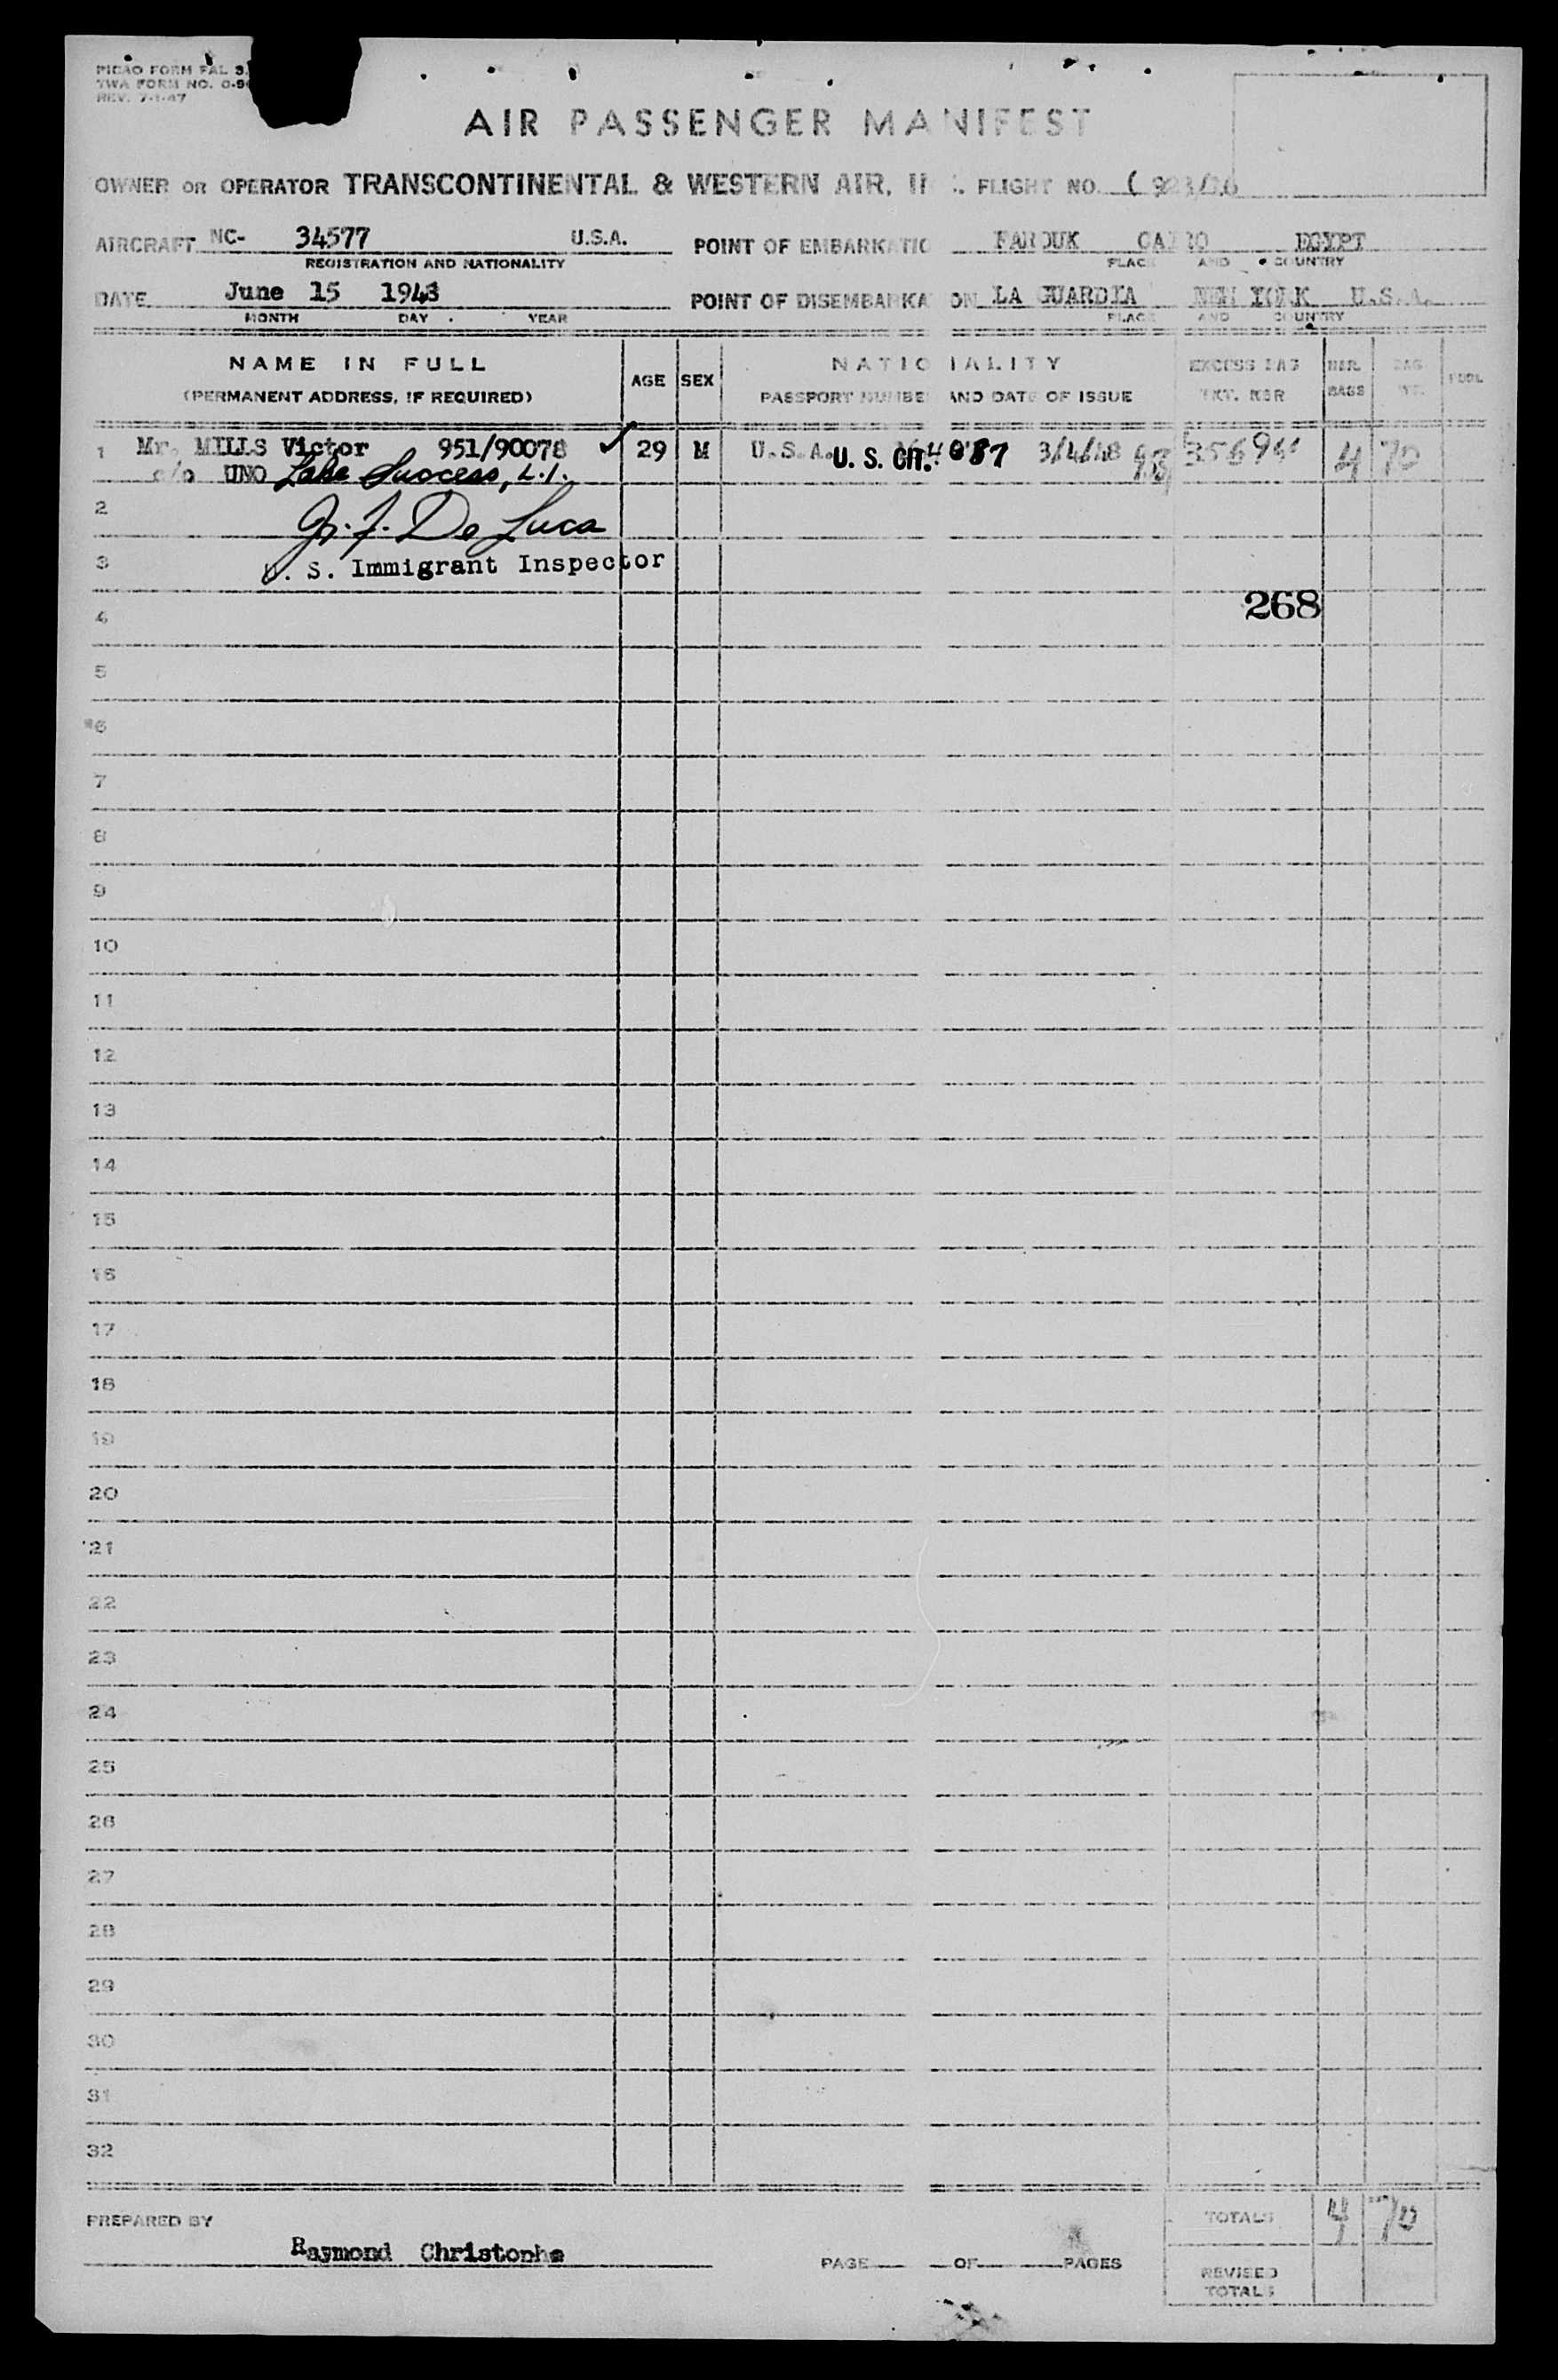 PICAO FORM FAL 3.
TWA FORM NO. O-9
REV. 7-1-47
AIR PASSENGER MANIFEST
OWNER OR OPERATOR TRANSCONTINENTAL & WESTERN AIR, IN C. FLIGHT NO.
AIRCRAFT NC- 34577 U.S.A. POINT OF EMBARKATIO FAROUK CAIRO EGYPT
REGISTRATION AND NATIONALITY PLACE AND COUNTRY
DATE June 15 1948 POINT OF DISEMBARKA ON LA GUARDIA NEW YORK U.S.A.
MONTH DAY YEAR PLACE AND COUNTRY
NAME IN FULL
(PERMANENT ADDRESS, IF REQUIRED)
AGE SEX
NATIO NALITY
PASSPORT NUMBE AND DATE OF ISSUE
EXCESS BAG
TKT. NBR
NBR. BAGS
BAG WT.
1 Mr. MILLS Victor 951/90078 ✓ 29 M U.S.A. U. S. CIT. 3/4/48 4 70
c/o UNO Lake Success, L.I.
2 De Luca
3 U. S. Immigrant Inspector
268
4
5
6
7
8
9
10
11
12
13
14
15
16
17
18
19
20
21
22
23
24
25
26
27
28
29
30
31
32
PREPARED BY
Raymond Christophe
PAGE OF PAGES
TOTALS 4 70
REVISED TOTALS